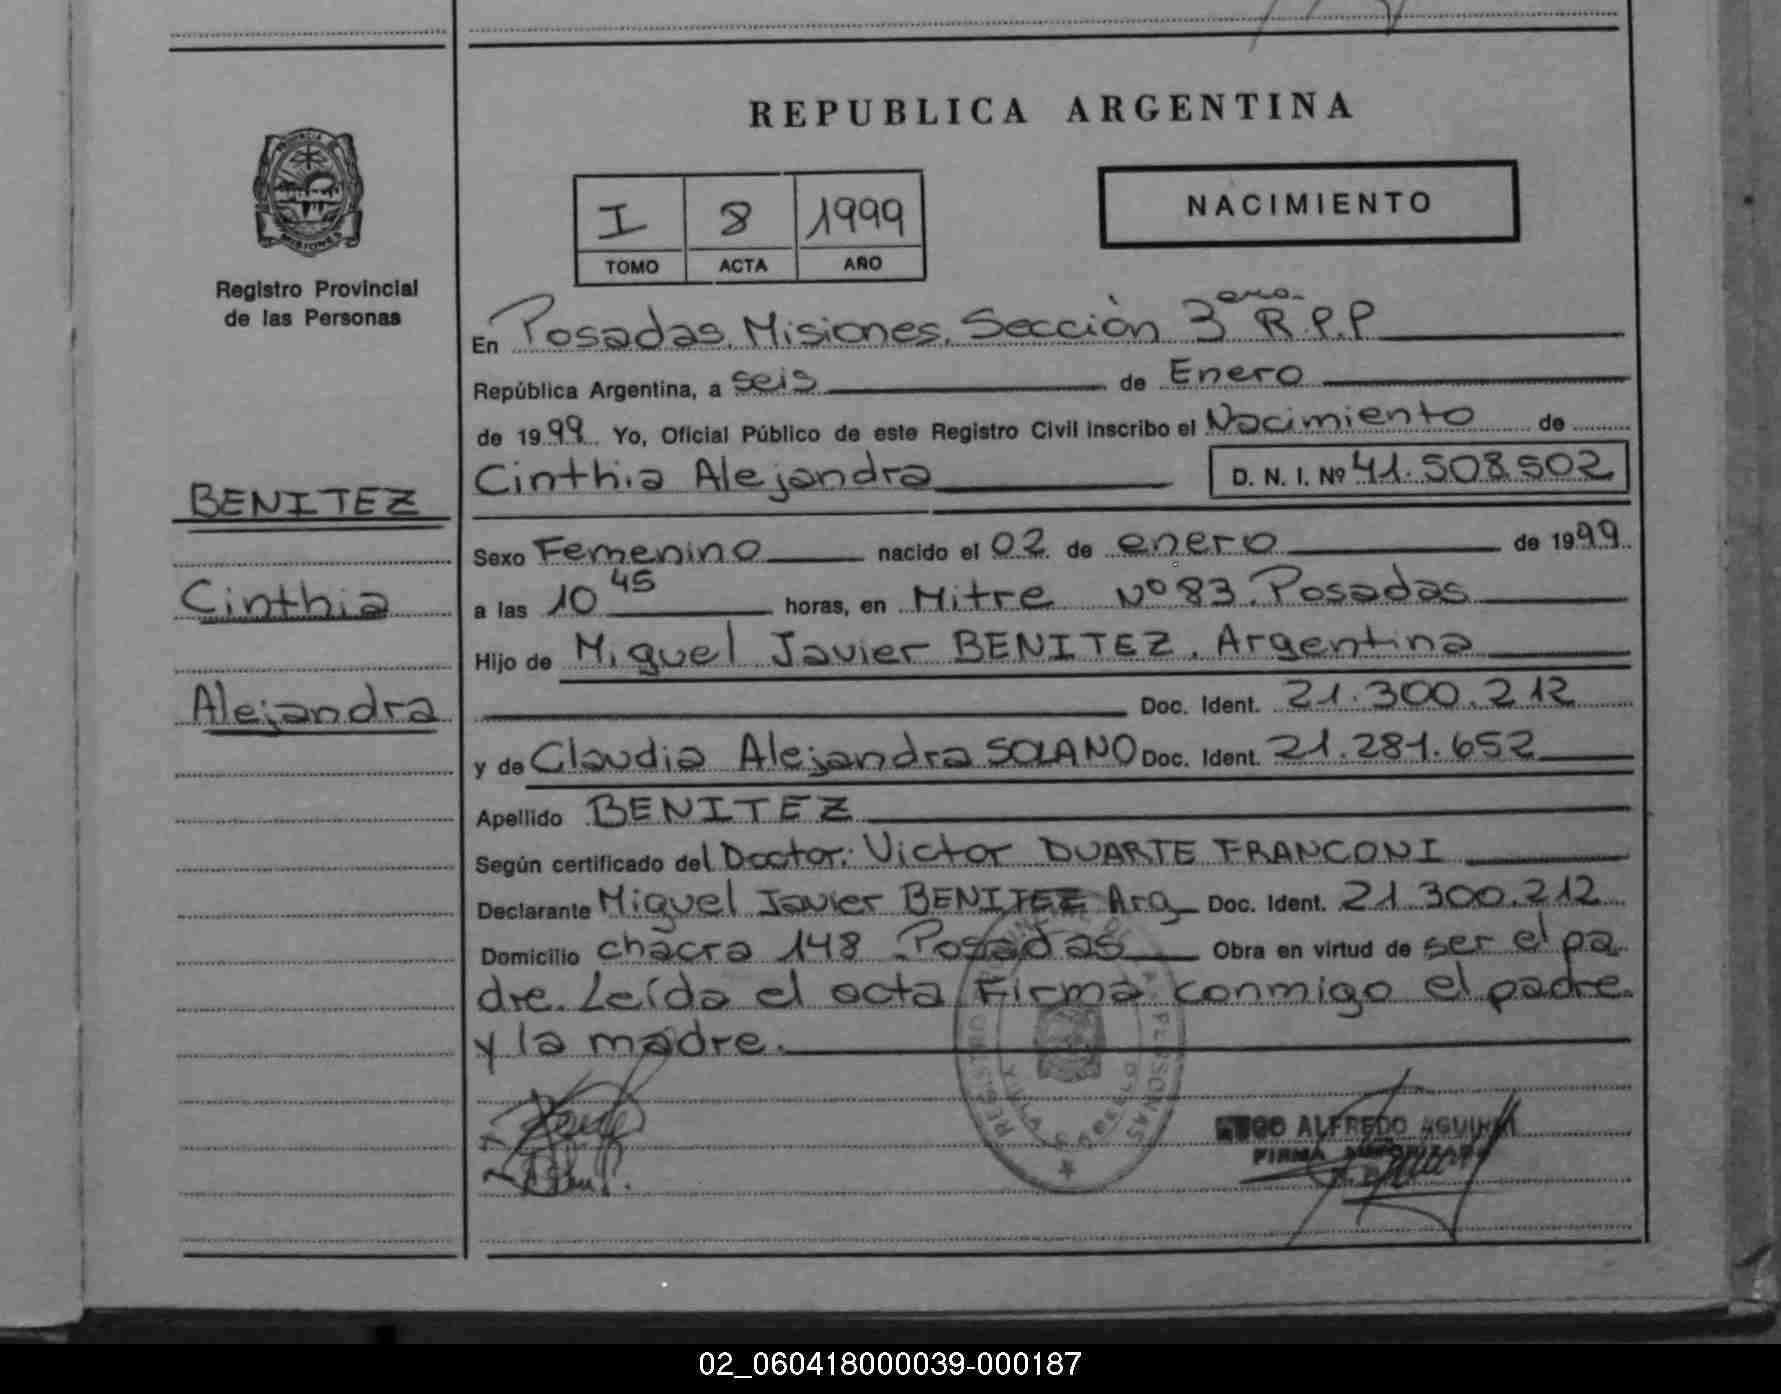 REPUBLICA ARGENTINA
NACIMIENTO
I 8 1999
TOMO ACTA AÑO
MISIONES
Registro Provincial
de las Personas
BENITEZ
Cinthia
Alejandra
En Posadas. Misiones. Sección 3era. R.P.P
República Argentina, a seis de Enero
de 1999 Yo, Oficial Público de este Registro Civil inscribo el Nacimiento de
Cinthia Alejandra D. N. I. Nº 41.508.502
Sexo Femenino nacido el 02 de enero de 1999
a las 10 45 horas, en Mitre Nº 83. Posadas
Hijo de Miguel Javier BENITEZ. Argentina
Doc. Ident. 21.300.212
y de Claudia Alejandra SOLANO Doc. Ident. 21.281.652
Apellido BENITEZ
Según certificado del Doctor: Victor DUARTE FRANCONI
Declarante Miguel Javier BENITEZ Arg Doc. Ident. 21.300.212
Domicilio chacra 148 Posadas Obra en virtud de ser el pa
dre. Leída el acta Firma conmigo el padre
y la madre.
ALFREDO
FIRMA AUTORIZADA
02_060418000039-000187